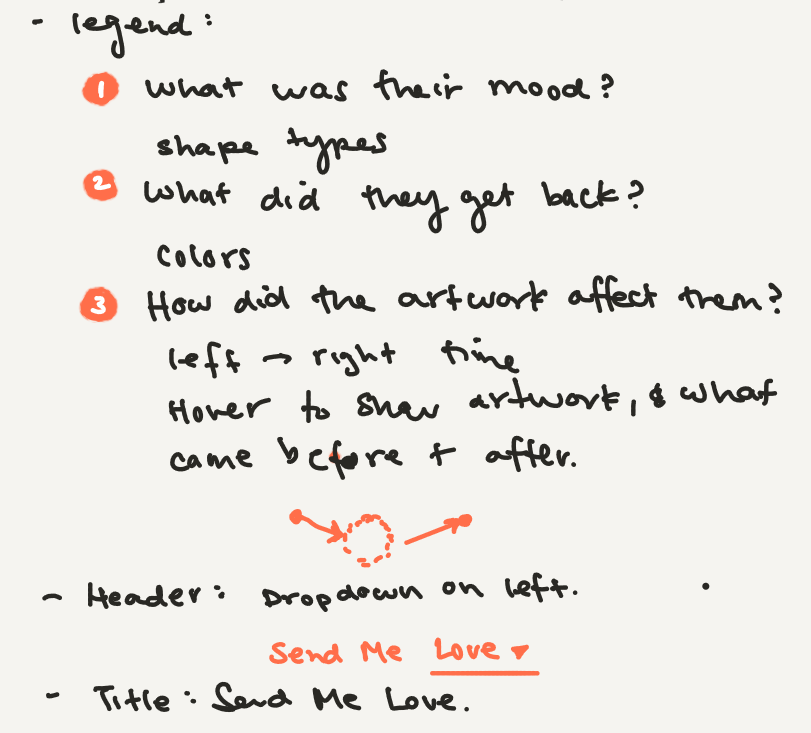 - legend:
1 What was their mood?
shape types
2 What did they get back?
colors
3 How did the artwork affect them?
left → right time
Hover to show artwork, & what
came before + after.
- Header: Dropdown on left.
Send Me Love ▾
- Title: Send Me Love.